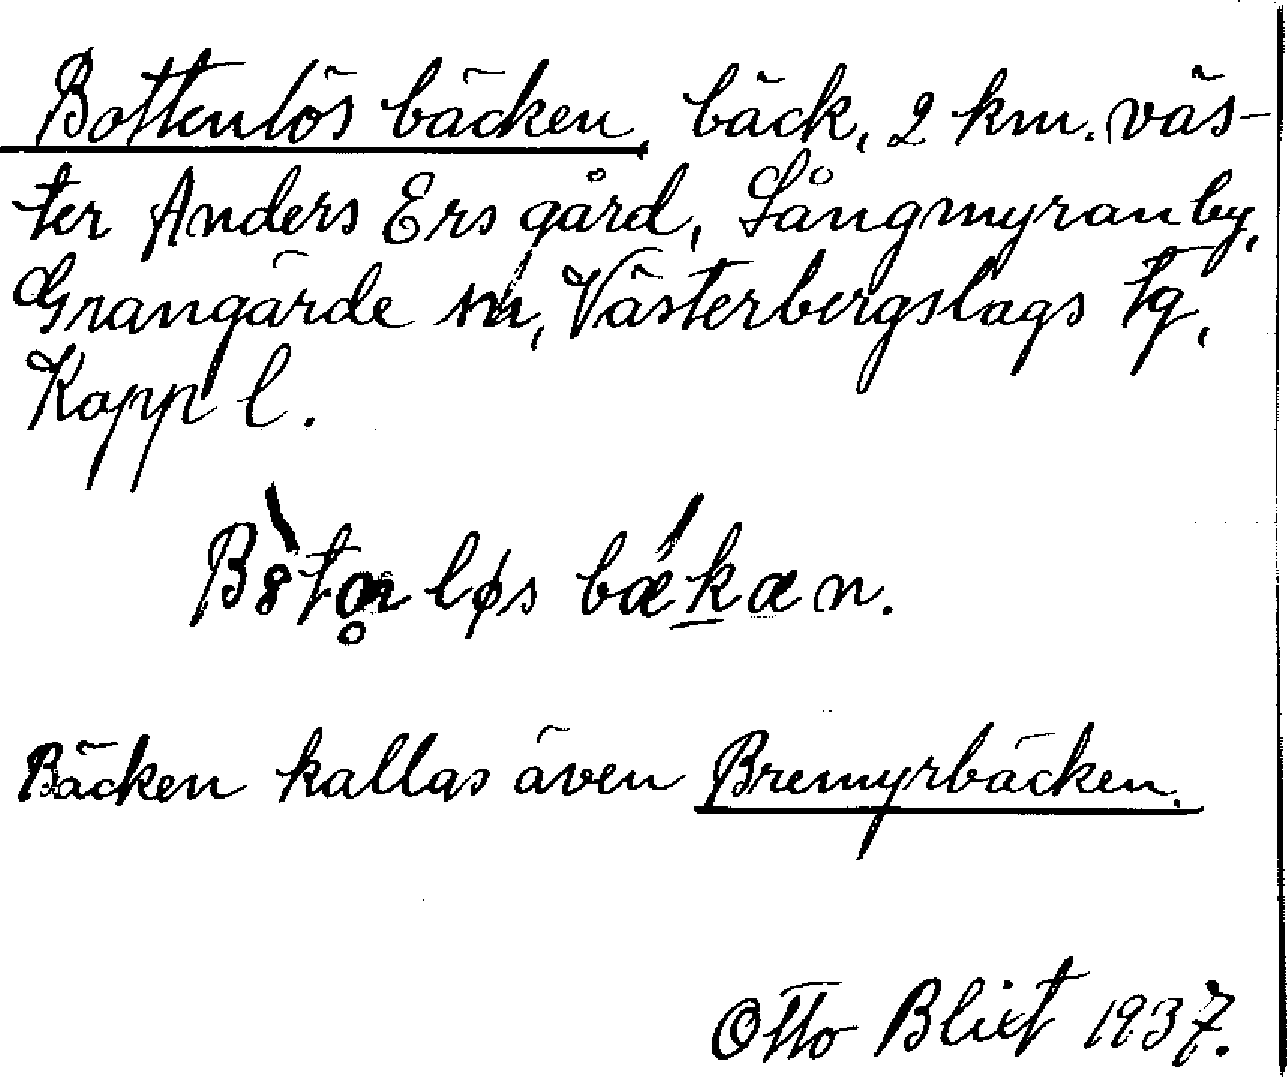 Bottenlös bäcken, bäck, 2 km. väs-
ter Anders Ers gård, Långmyran by,
Grangärde sn, Västerbergslags tg,
Kopp l.
løs bǽkæn.
Bäcken kallas även Bremyrbäcken.
Otto Blixt 1937.